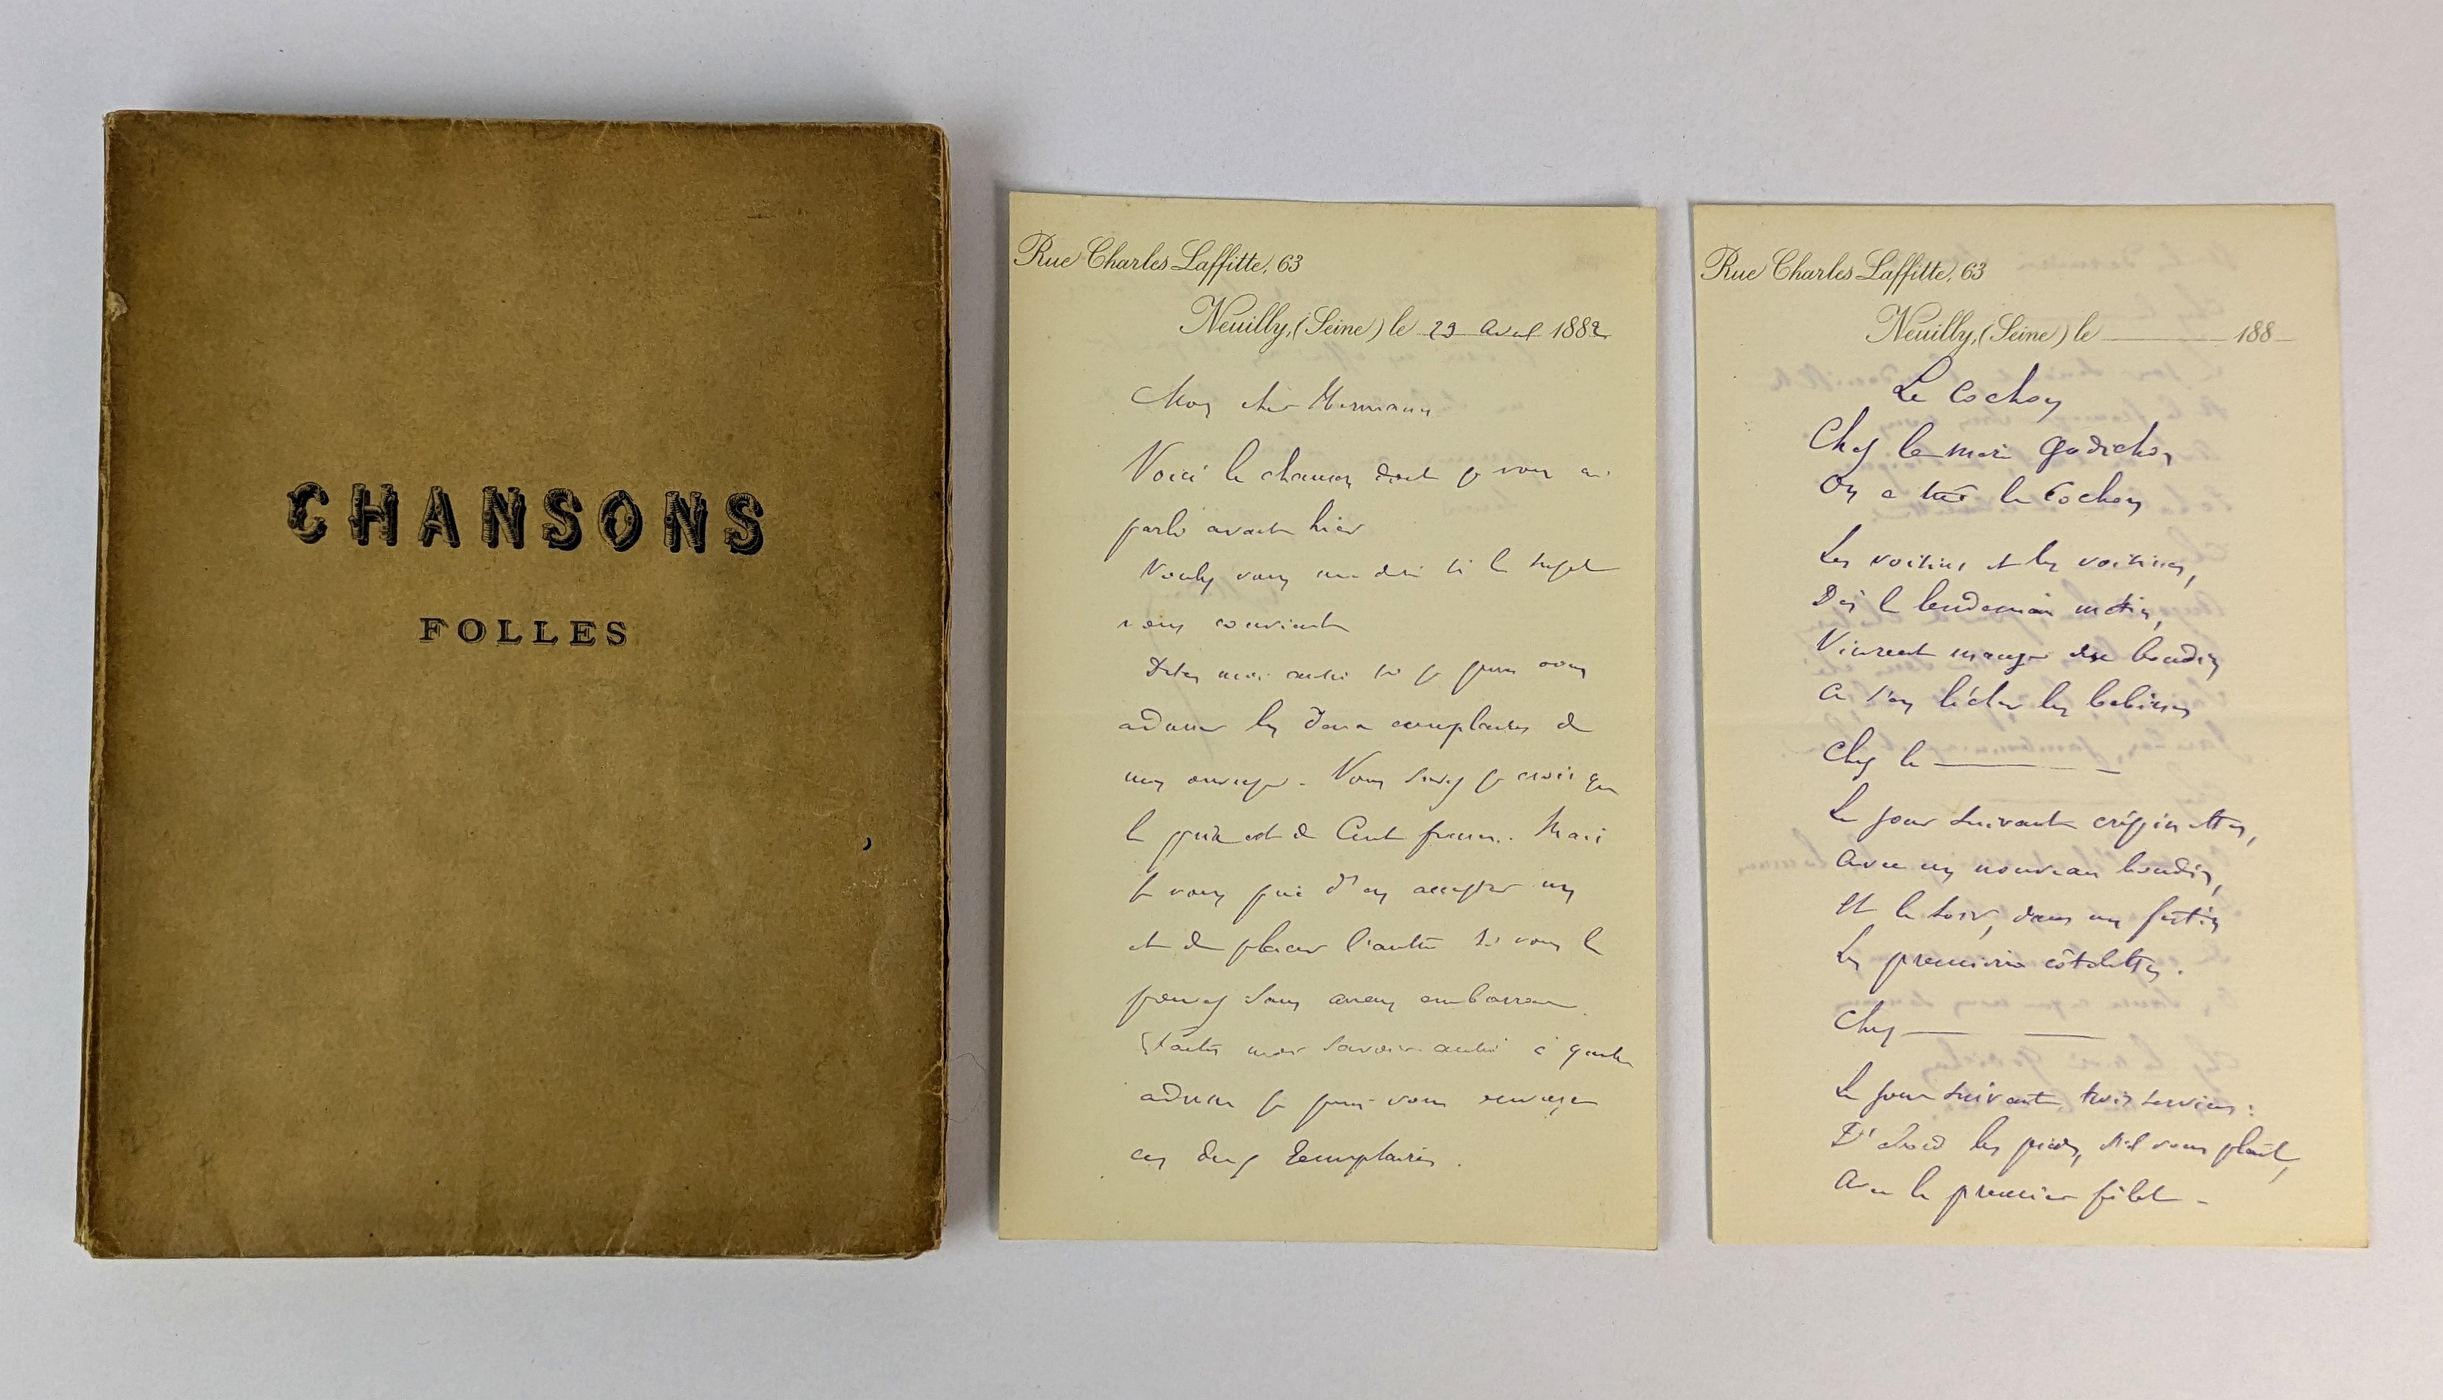 CHANSONS
FOLLES
Rue Charles Laffitte, 63
Neuilly, (Seine) le 29 avril 1882
Mon cher Hermann
Voici la chanson dont je vous ai
parlé avant hier
Voulez vous me dire si le sujet
vous convient
Dites moi aussi si je puis vous
adresser les deux exemplaires de
mon ouvrage. Vous savez je crois que
le prix est de Cent francs. Mais
je vous prie d'en accepter un
et de placer l'autre si vous le
pouvez sans aucun embarras.
Faites moi savoir aussi à quelle
adresse je puis vous envoyer
ces deux Exemplaires.
Rue Charles Laffitte, 63
Neuilly, (Seine) le 188
Le Cochon
Chez le mari Godichon
On a tué le Cochon
Les voisins et les voisines,
Dès le lendemain matin,
Vinrent manger du boudin
à s'en lécher les babines
Chez le
Le jour suivant crépinettes,
Avec un nouveau boudin,
Et le soir, dans un festin
Les premières côtelettes.
Chez
Le jour suivant trois services:
D'abord les pieds, s'il vous plaît,
Avec le premier filet -